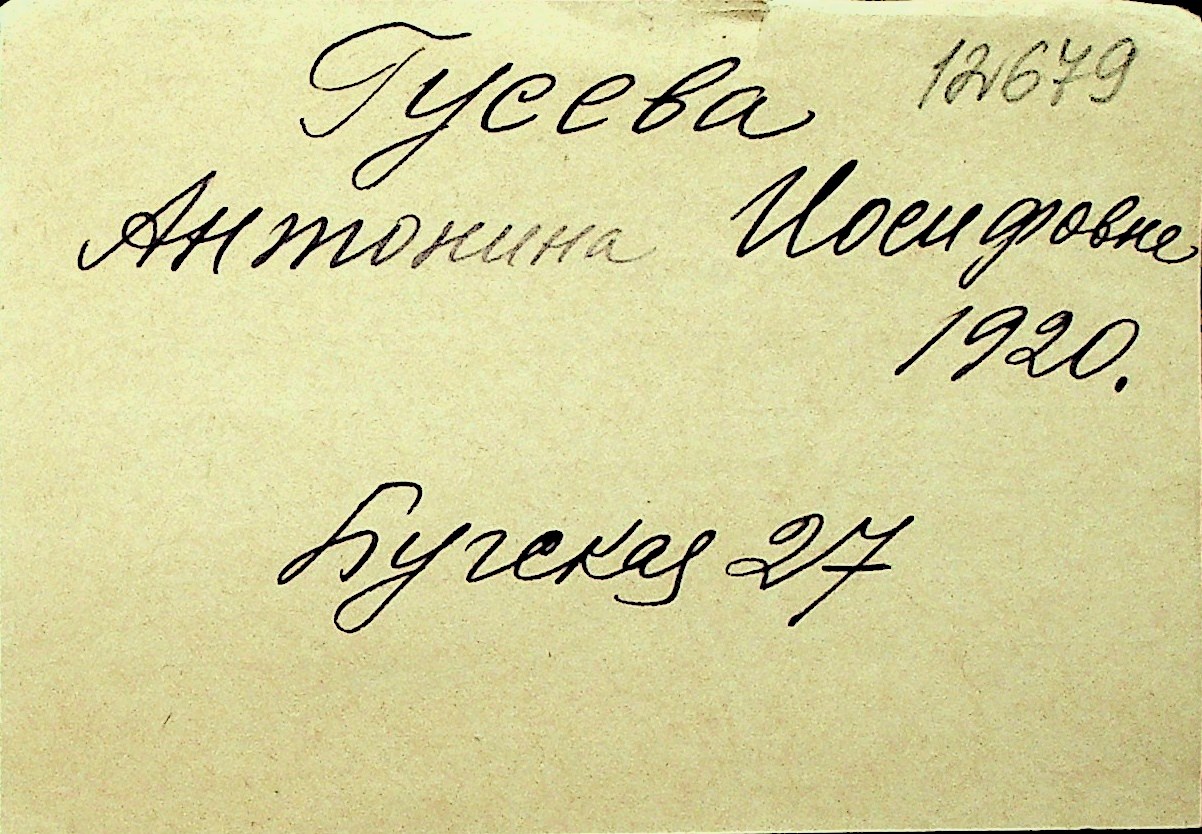 Гусева 12679
Антонина Иосифовне
1920.
Бугская 27